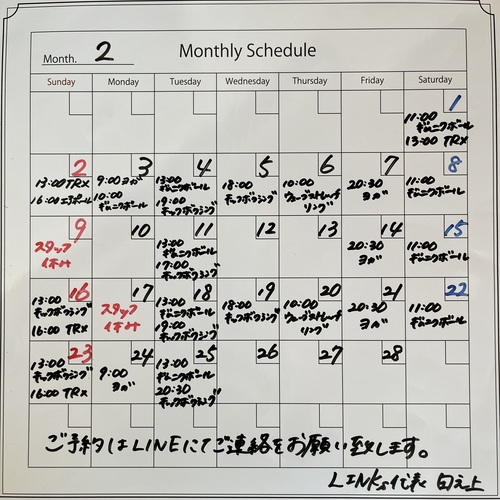 Month. 2 Monthly Schedule
Sunday Monday Tuesday Wednesday Thursday Friday Saturday
1
11:00
ギムニクボール
13:00 TRX
2 3 4 5 6 7 8
13:00 TRX
16:00 エアポール
9:00 ヨガ
10:00
ギムニクボール
13:00
ギムニクボール
19:00
キックボクシング
18:00
キックボクシング
10:00
ウェーブストレッチ
リング
20:30
ヨガ
11:00
ギムニクボール
9 10 11 12 13 14 15
スタッフ
休み
13:00
ギムニクボール
17:00
キックボクシング
20:30
ヨガ
11:00
ギムニクボール
16 17 18 19 20 21 22
13:00
キックボクシング
16:00 TRX
スタッフ
休み
13:00
ギムニクボール
19:00
キックボクシング
18:00
キックボクシング
10:00
ウェーブストレッチ
リング
20:30
ヨガ
11:00
ギムニクボール
23 24 25 26 27 28
13:00
キックボクシング
16:00 TRX
9:00
ヨガ
13:00
ギムニクボール
20:30
キックボクシング
ご予約はLINEにてご連絡をお願い致します。
LINKs代表